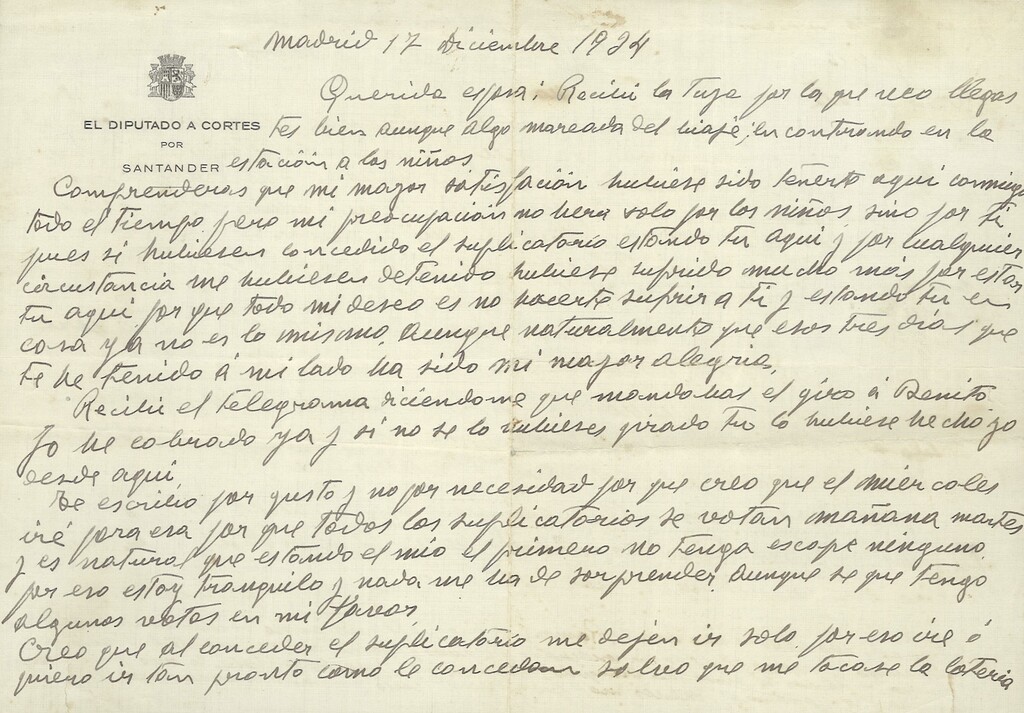 Madrid 17 Diciembre 1934
EL DIPUTADO A CORTES
POR
SANTANDER
Querida esposa: Recibí la tuya por la que veo llegas
tes bien aunque algo mareada del viaje, encontrando en la
estación a los niños.
Comprenderas que mi mayor satisfación hubiese sido tenerte aquí conmigo
todo el tiempo pero mi preocupación no hera solo por los niños sino por ti
pues si hubiesen concedido el suplicatorio estando tu aquí y por cualquier
circustancia me hubiesen detenido hubiese sufrido mucho más por estar
tu aquí por que todo mi deseo es no hacerte sufrir a ti y estando tu en
casa ya no es lo mismo. Aunque naturalmente que esos tres días que
te he tenido á mi lado ha sido mi mayor alegria.
Recibí el telegrama diciendome que mandabas el giro á Benito
Yo he cobrado ya y si no se lo hubieses girado tu lo hubiese hecho yo
desde aquí.
Te escribo por gusto y no por necesidad por que creo que el miercoles
iré para esa por que todos los suplicatorios se votan mañana martes
y es natural que estando el mio el primero no tenga escape ninguno
por eso estoy tranquilo y nada me ha de sorprender aunque se que tengo
algunos votos en mi favor.
Creo que al conceder el suplicatorio me dejen ir solo por eso iré ó
quiero ir tan pronto como le concedan salvo que me tocase la loteria